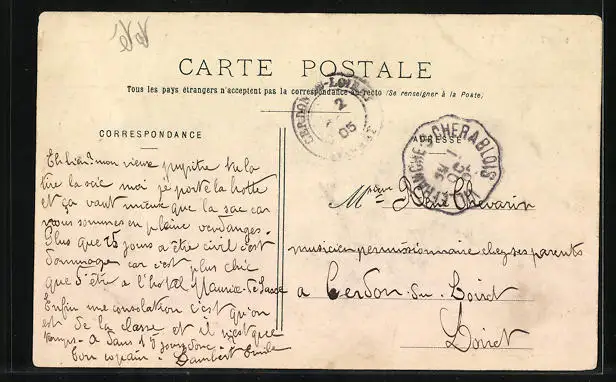 CARTE POSTALE
Tous les pays étrangers n'acceptent pas la correspondance au recto (Se renseigner à la Poste)
CORRESPONDANCE
ADRESSE
Eh bien mon vieux pupitre va la
tire la scie moi je porte la hotte
et ça vaut mieux que la sac car
nous sommes en pleine vendanges.
Plus que 15 jours a être civil c'est
dommage car c'est plus chic
que d'être a l'hotel Maurice de Saxe
Enfin une consolation c'est qu'on
est de la classe et il n'est que
temps. a dans 15 jours donc
ton copain : Lambert Emile
René Chevarin
musicien permissionnaire chez ses parents
a Cerdon du Loiret
Loiret
CERDON-DU-LOIRET
2
05
CHER A BLOIS